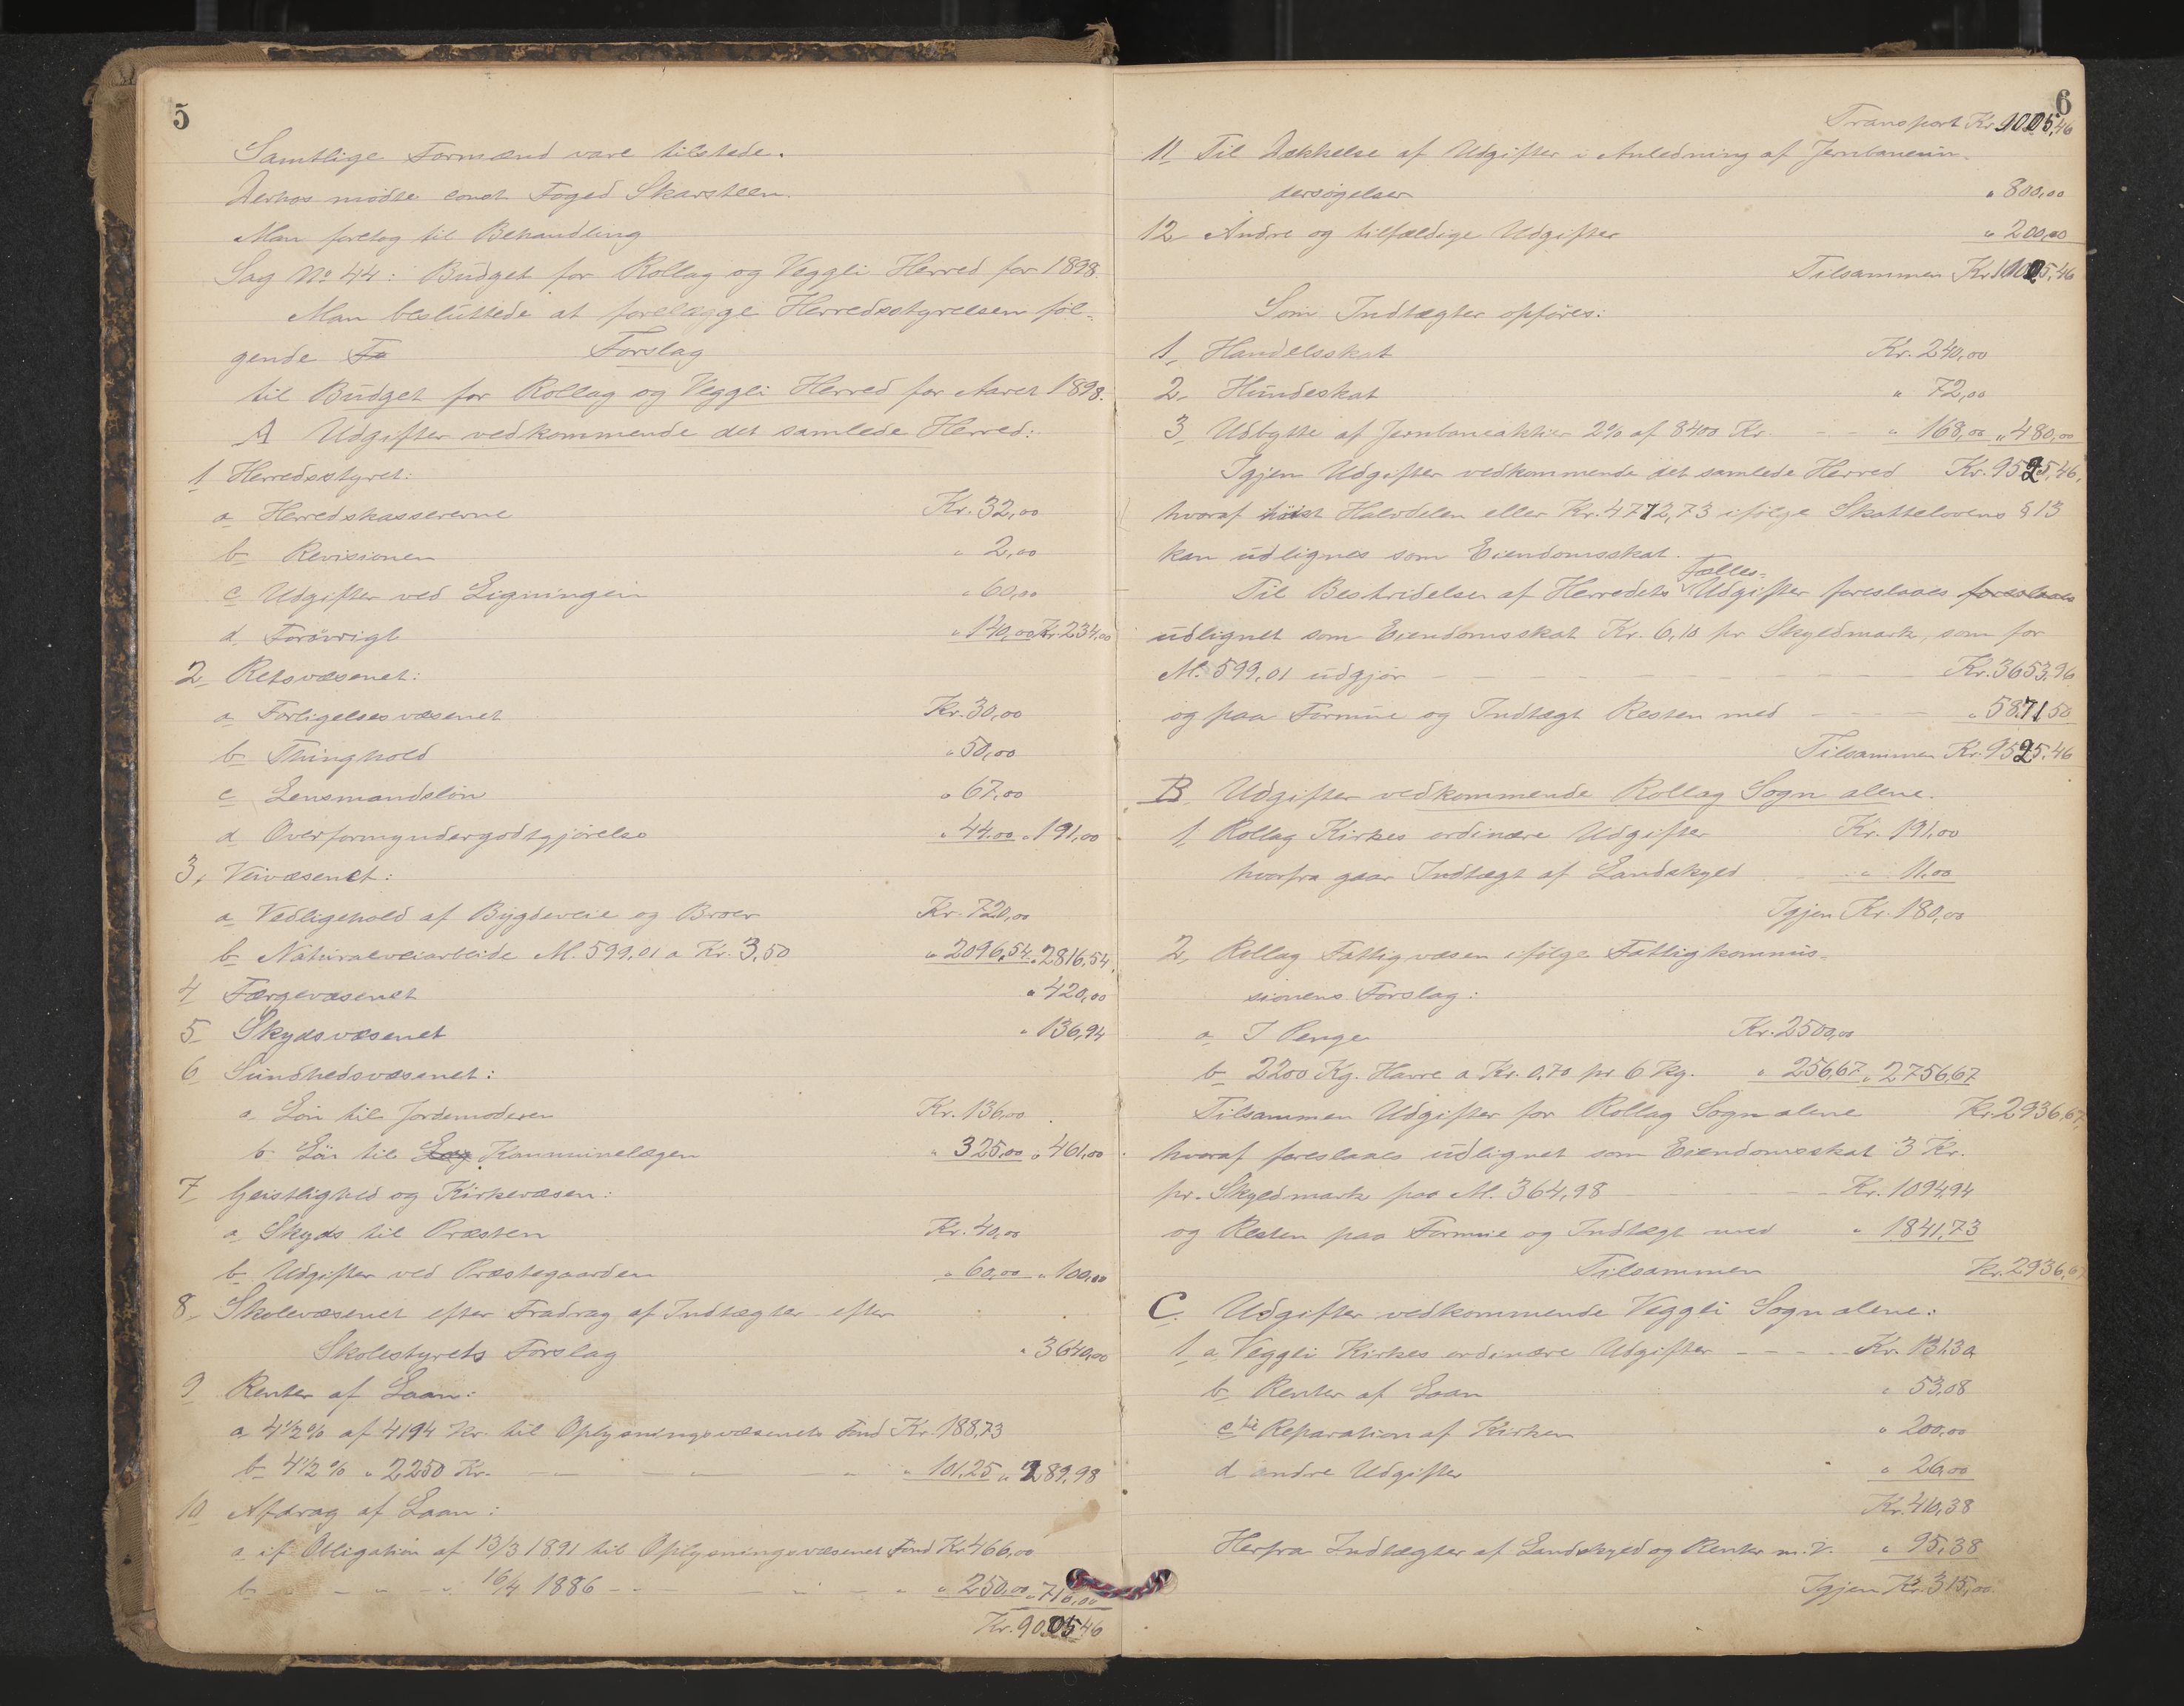 5
Samtlige Formænd vare tilstede.
Derhos mødte const Foged Skarsteen.
Man foretog til Behandling
Sag No 44: Budget for Rollag og Veggli Herred for 1898.
Man besluttede at forelægge Herredsstyrelsen føl-
gende Fo Forslag
til Budget for Rollag og Veggli Herred for Aaret 1898.
A Udgifter vedkommende det samlede Herred:
1 Herredsstyret:
a Herredskassererne Kr. 32,00
b Revisionen " 2,00
c Udgifter ved Ligningen " 60,00
d Forøvrigt " 140,00 Kr. 234,00
2 Retsvæsenet:
a Forligelsesvæsenet Kr. 30,00
b Thinghold " 50,00
c Lensmandsløn " 67,00
d Overformyndergodtgjørelse " 44.00 " 191,00
3, Veivæsenet:
a Vedligehold af Bygdeveie og Broer Kr. 720,00
b Naturalveiarbeide M. 599,01 a Kr. 3,50 " 2096,54 " 2816,54
4 Færgevæsenet " 420,00
5 Skydsvæsenet " 136,94
6 Sundhedsvæsenet:
a Løn til Jordemoderen Kr. 136,00
b Løn til Læg Kommunelægen " 325,00 " 461,00
7 Geistlighed og Kirkevæsen:
a Skyds til Præsten Kr. 40,00
b Udgifter ved Præstegaarden " 60,00 " 100,00
8, Skolevæsenet efter Fradrag af Indtægter efter
Skolestyrets Forslag " 3640,00
9 Renter af Laan:
a 4 1/2 % af 4194 Kr. til Oplysningsvæsenets Fond Kr. 188,73
b 4 1/2 % " 2250 Kr. - " - " - " " 101,25 " 289,98
10 Afdrag af Laan:
a if Obligation af 13/3 1891 til Oplysningsvæsenets Fond Kr. 466,00
b - " - " - " 16/4 1886 - - - " - " " 250,00 " 716,00
Kr. 9005,46
6
Transport Kr. 9005,46
11 Til Dækkelse af Udgifter i Anledning af Jernbaneun-
dersøgelser " 800,00
12 Andre og tilfældige Udgifter " 200,00
Tilsammen Kr. 10005,46
Som Indtægter opføres:
1, Handelsskat Kr. 240,00
2, Hundeskat " 72,00
3 Udbytte af Jernbaneaktier 2% af 8400 Kr. - - " 168,00 " 480,00
Igjen Udgifter vedkommende det samlede Herred Kr. 9525,46,
hvoraf høist Halvdelen eller Kr. 4712,73 ifølge Skattelovens § 13
kan udlignes som Eiendomsskat.
Fælles-
Til Bestridelsen af Herredets Udgifter foreslaaes foreslaaes
udlignet som Eiendomsskat Kr. 6,10 pr Skyldmark, som for
M. 599,01 udgjør - - - Kr. 3653,96
og paa Formue og Indtægt Resten med - - - " 5871,50
Tilsammen Kr. 9525,46
B Udgifter vedkommende Rollag Sogn alene.
1 Rollag Kirkes ordinære Udgifter Kr. 191,00
hvorfra gaar Indtægt af Landskyld - - " 11.00
Igjen Kr. 180,00
2, Rollag Fattigvæsen ifølge Fattigkommis-
sionens Forslag:
a I Penge Kr. 2500,00
b 2200 Kg. Havre a Kr. 0,70 pr 6 Kg. " 256,67 " 2756,67
Tilsammen Udgifter for Rollag Sogn alene Kr. 2936,67,
hvoraf foreslaaes udlignet som Eiendomsskat 3 Kr.
pr. Skyldmark paa M. 364,98 - - - Kr. 1094,94
og Resten paa Formue og Indtægt med " 1841,73
Tilsammen Kr. 2936,67
C. Udgifter vedkommende Veggli Sogn alene:
1 a Veggli Kirkes ordinære Udgifter - - - - Kr. 131,30
b Renter af Laan " 53,08
c til Reparation af Kirken " 200,00
d andre Udgifter " 26,00
Kr. 410,38
Herfra Indtægter af Landskyld og Renter m. V. " 95,38
Igjen Kr. 315,00